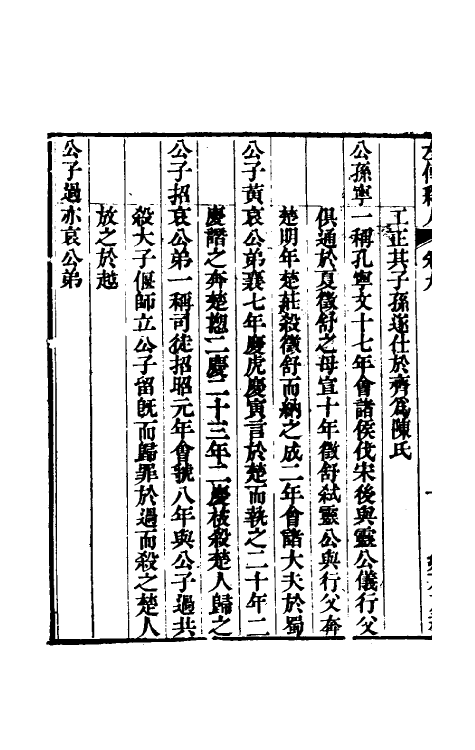 左傳釋人 卷九
工正其子孫遂仕於齊爲陳氏
公孫寧一稱孔寧文十七年會諸侯伐宋後與靈公儀行父
俱通於夏徵舒之母宣十年徵舒弒靈公與行父奔
楚明年楚莊殺徵舒而納之成二年會諸大夫於蜀
公子黃哀公弟襄七年慶虎慶寅言於楚而執之二十年二
慶譖之奔楚愬二慶二十三年二慶被殺楚人歸之
公子招哀公弟一稱司徒招昭元年會虢八年與公子過共
殺大子偃師立公子留旣而歸罪於過而殺之楚人
放之於越
公子過亦哀公弟